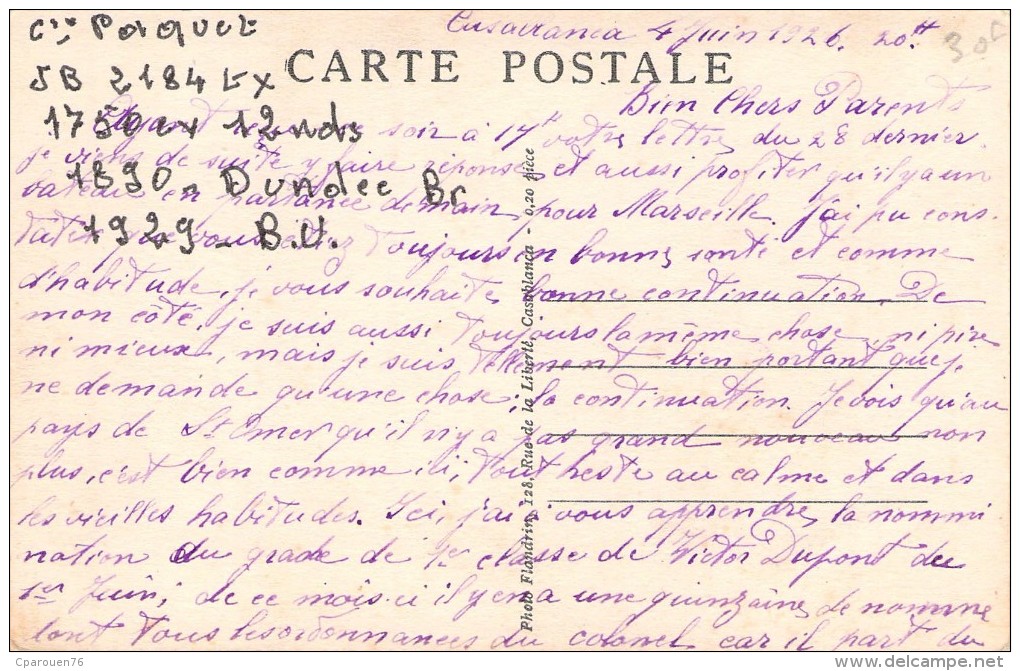 Casablanca 4 Juin 1926. 20H
30c
Cie Paquet
CARTE POSTALE
JB 2184 tx
Bien Chers Parents
1750 cv 12 nds
Ayant reçu ce soir à 17h votre lettre du 28 dernier.
je viens de suite y faire réponse et aussi profiter qu'il y a un
1890 - Dundee Br
bateau en partance demain pour Marseille. J'ai pu cons-
1929 - B.U.
tater que vous étiez toujours en bonne santé et comme
d'habitude, je vous souhaite bonne continuation. De
mon côté, je suis aussi toujours la même chose, ni pire
ni mieux, mais je suis tellement bien portant que j.
ne demande qu'une chose; la continuation. Je vois qu'au
pays de St Omer qu'il n'y a pas grand nouveau non
plus, c'est bien comme ici, tout reste au calme et dans
les vieilles habitudes. Ici, j'ai à vous apprendre la nommi
nation du grade de 1e classe de Victor Dupont du
1er Juin, de ce mois-ci il y en a une quinzaine de nommé
dont tous les ordonnances du colonel car il part du
Photo Flandrin, 128, Rue de la Liberté, Casablanca - 0,20 pièce
Cparouen76